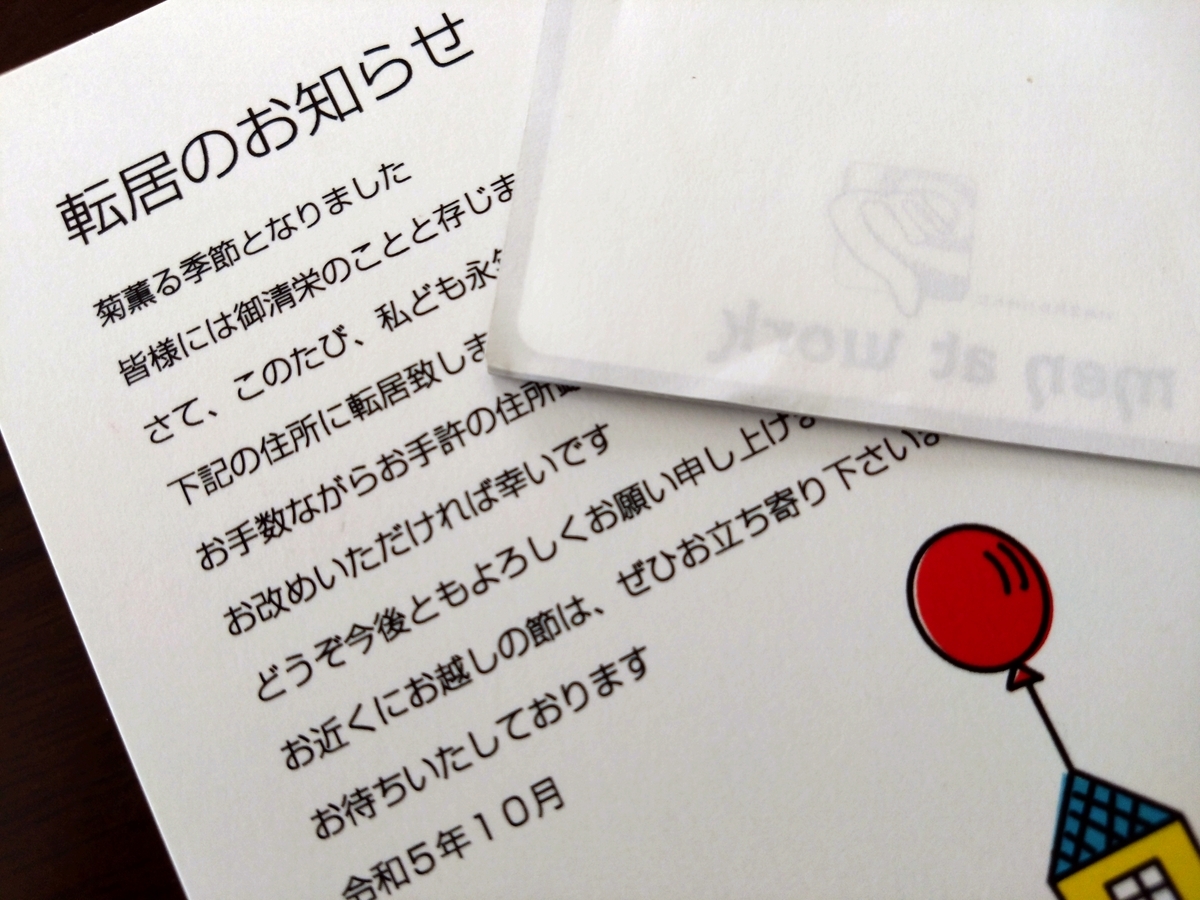 転居のお知らせ
菊薫る季節となりました
皆様には御清栄のことと存じま
さて、このたび、私ども永
下記の住所に転居致しま
お手数ながらお手許の住所
お改めいただければ幸いです
どうぞ今後ともよろしくお願い申し上げま
お近くにお越しの節は、ぜひお立ち寄り下さい
お待ちいたしております
令和5年10月
men at work